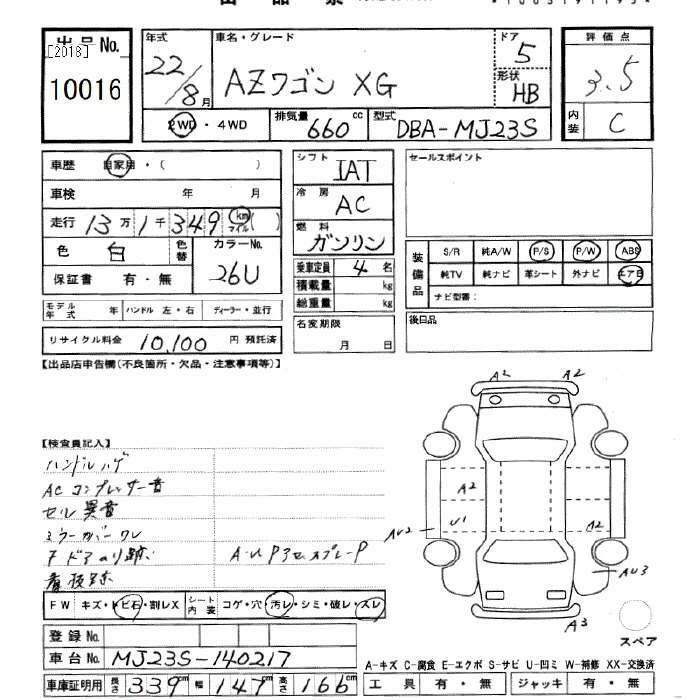 出品票
出品 No.
[2018]
10016
年式
22/8月
車名・グレード
AZワゴン XG
ドア
5
形状
HB
評価点
3.5
内装
C
2WD・4WD
排気量
660cc
型式
DBA-MJ23S
車歴 自家用・( )
車検 年 月
走行 13万1千349 km マイル ( )
色 白
色替
カラーNo.
26U
保証書 有・無
モデル年式 年 ハンドル 左・右 ディーラー・並行
リサイクル料金 10,100 円 預託済
シフト
IAT
冷房
AC
燃料
ガソリン
乗車定員 4名
積載量 kg
総重量 kg
名変期限
月 日
セールスポイント
装備品
S/R 純A/W P/S P/W ABS
純TV 純ナビ 革シート 外ナビ エアB
ナビ型番:
後日品
【出品店申告欄(不良箇所・欠品・注意事項等)】
A2 A2
【検査員記入】
ハンドルハゲ
ACコンプレッサー音
セル異音
ミラーカバーワレ
ドアのり跡
A・U P
A2
U1
AU2
A2
AU3
A3
FW キズ・トビ石・割レX シート内装 コゲ・穴・汚レ・シミ・破レ・スレ
登録 No.
車台 No. MJ23S-140217
車庫証明用 長さ 339cm 幅 147cm 高さ 166cm
スペア
A-キズ C-腐食 E-エクボ S-サビ U-凹ミ W-補修 XX-交換済
工具 有・無 ジャッキ 有・無